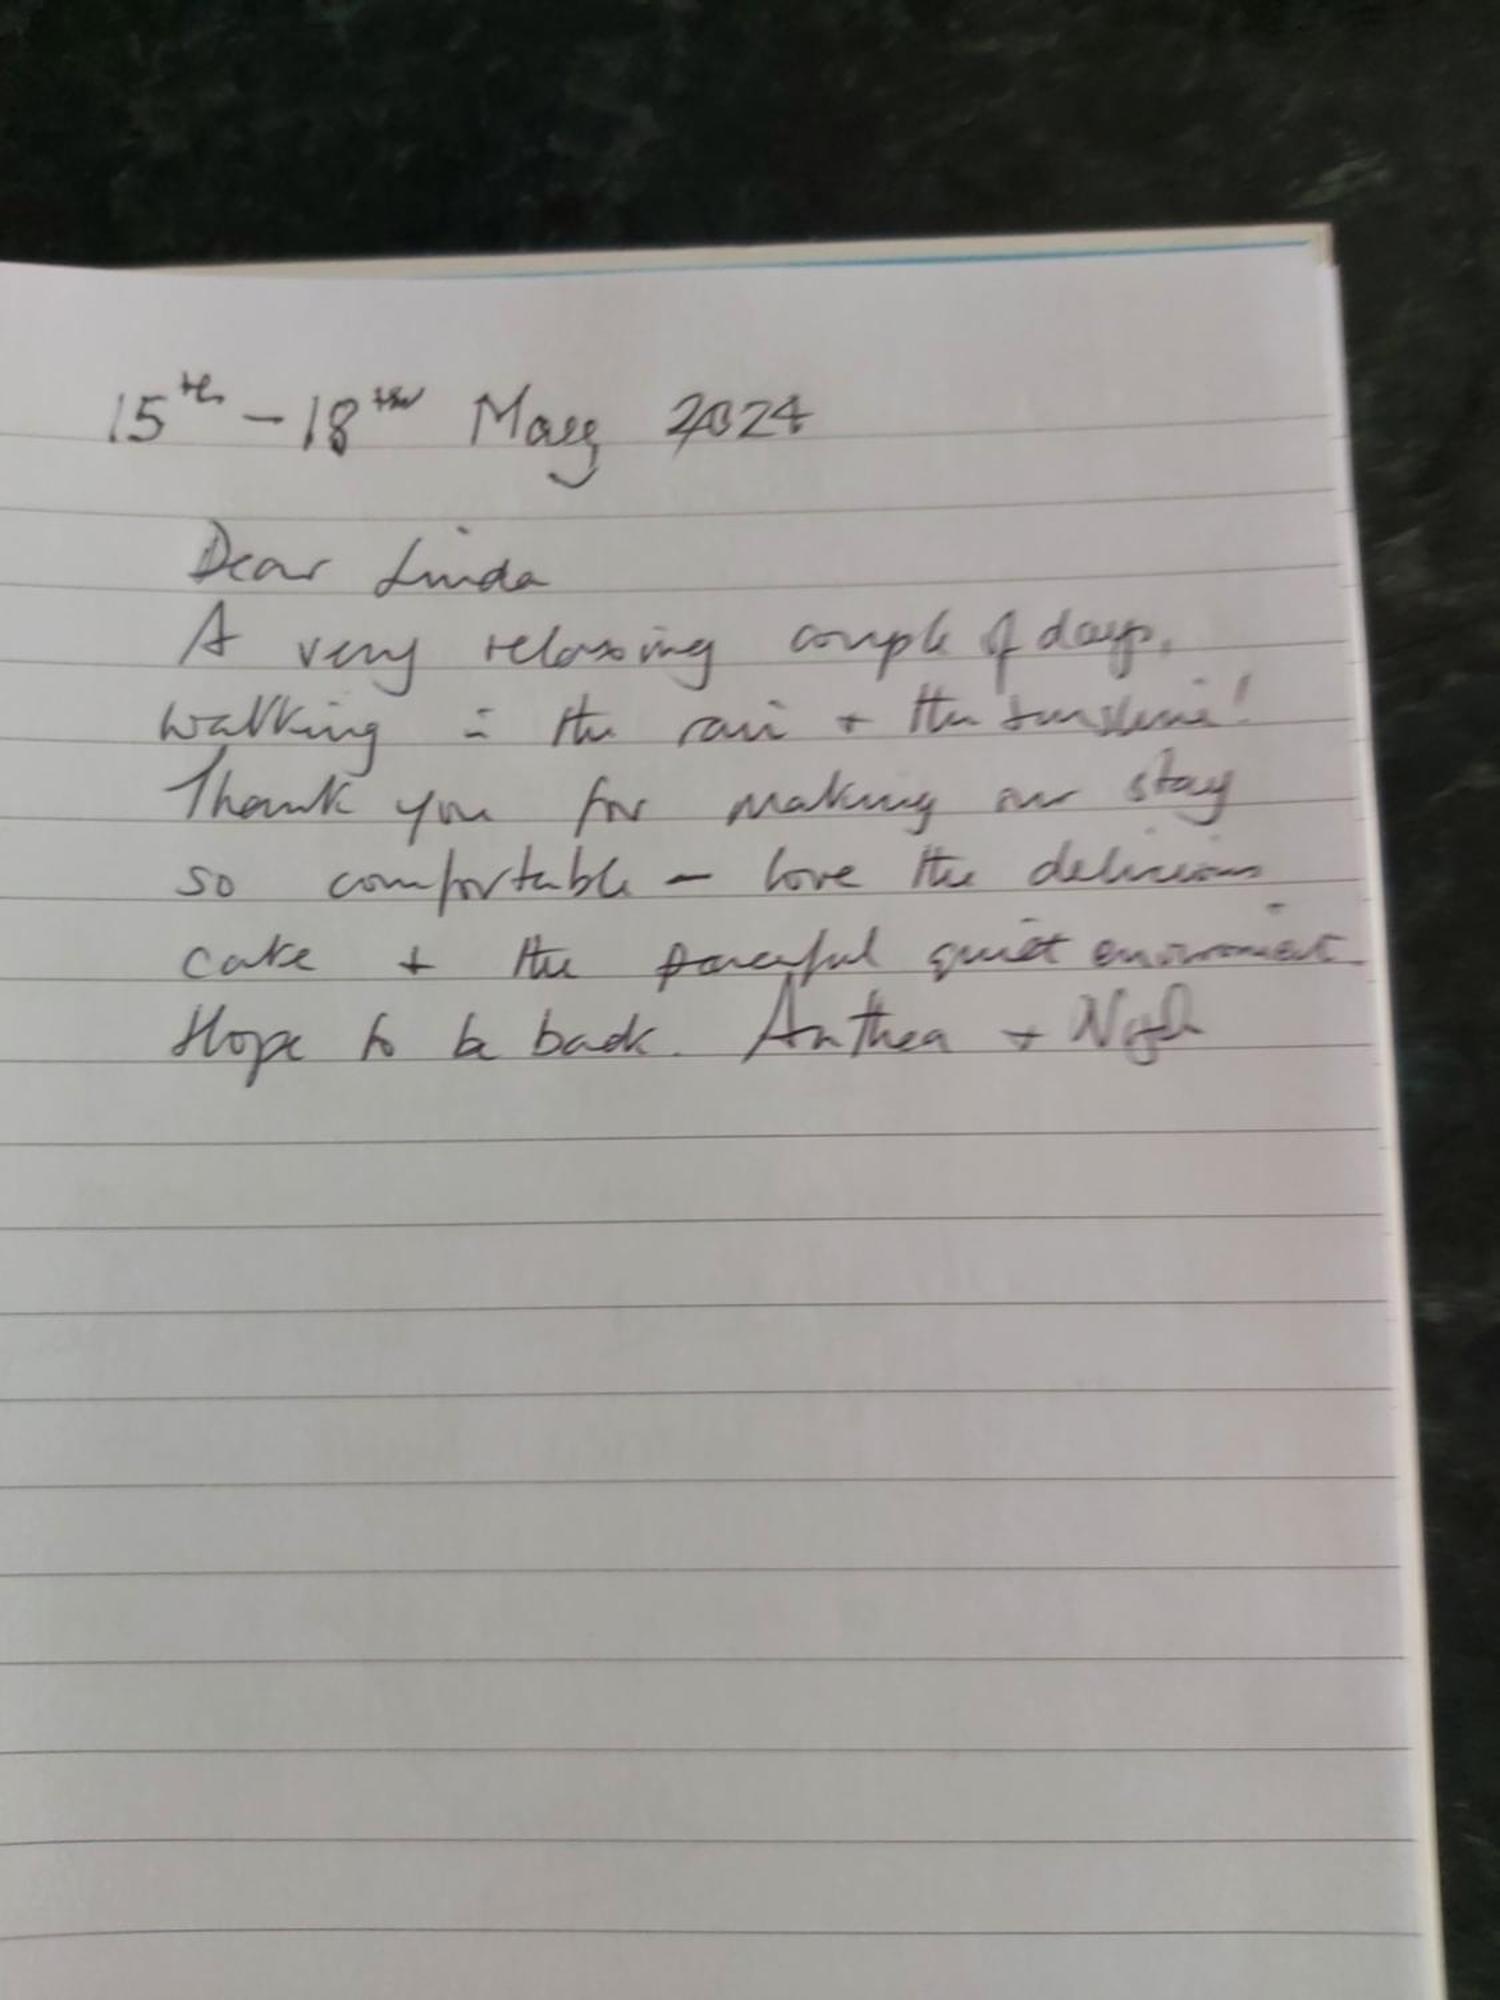 15th - 18th May 2024
Dear Linda
A very relaxing couple of days,
walking in the rain + the sunshine!
Thank you for making our stay
so comfortable - love the delicious
cake + the peaceful quiet environment.
Hope to be back. Anthea + Nigel